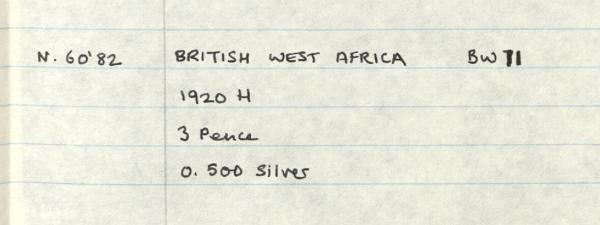 N. 60'82 BRITISH WEST AFRICA BW 71
1920 H
3 Pence
0. 500 Silver